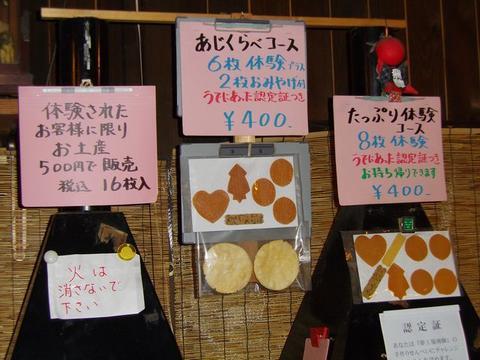 体験された
お客様に限り
お土産
500円で販売
税込 16枚入
火は
消さないで
下さい
あじくらべコース
6枚体験プラス
2枚おみやげ付
うでじまん認定証つき
¥400-
たっぷり体験
コース
8枚体験
うでじまん認定証つき
お持ち帰りできます
¥400-
認定証